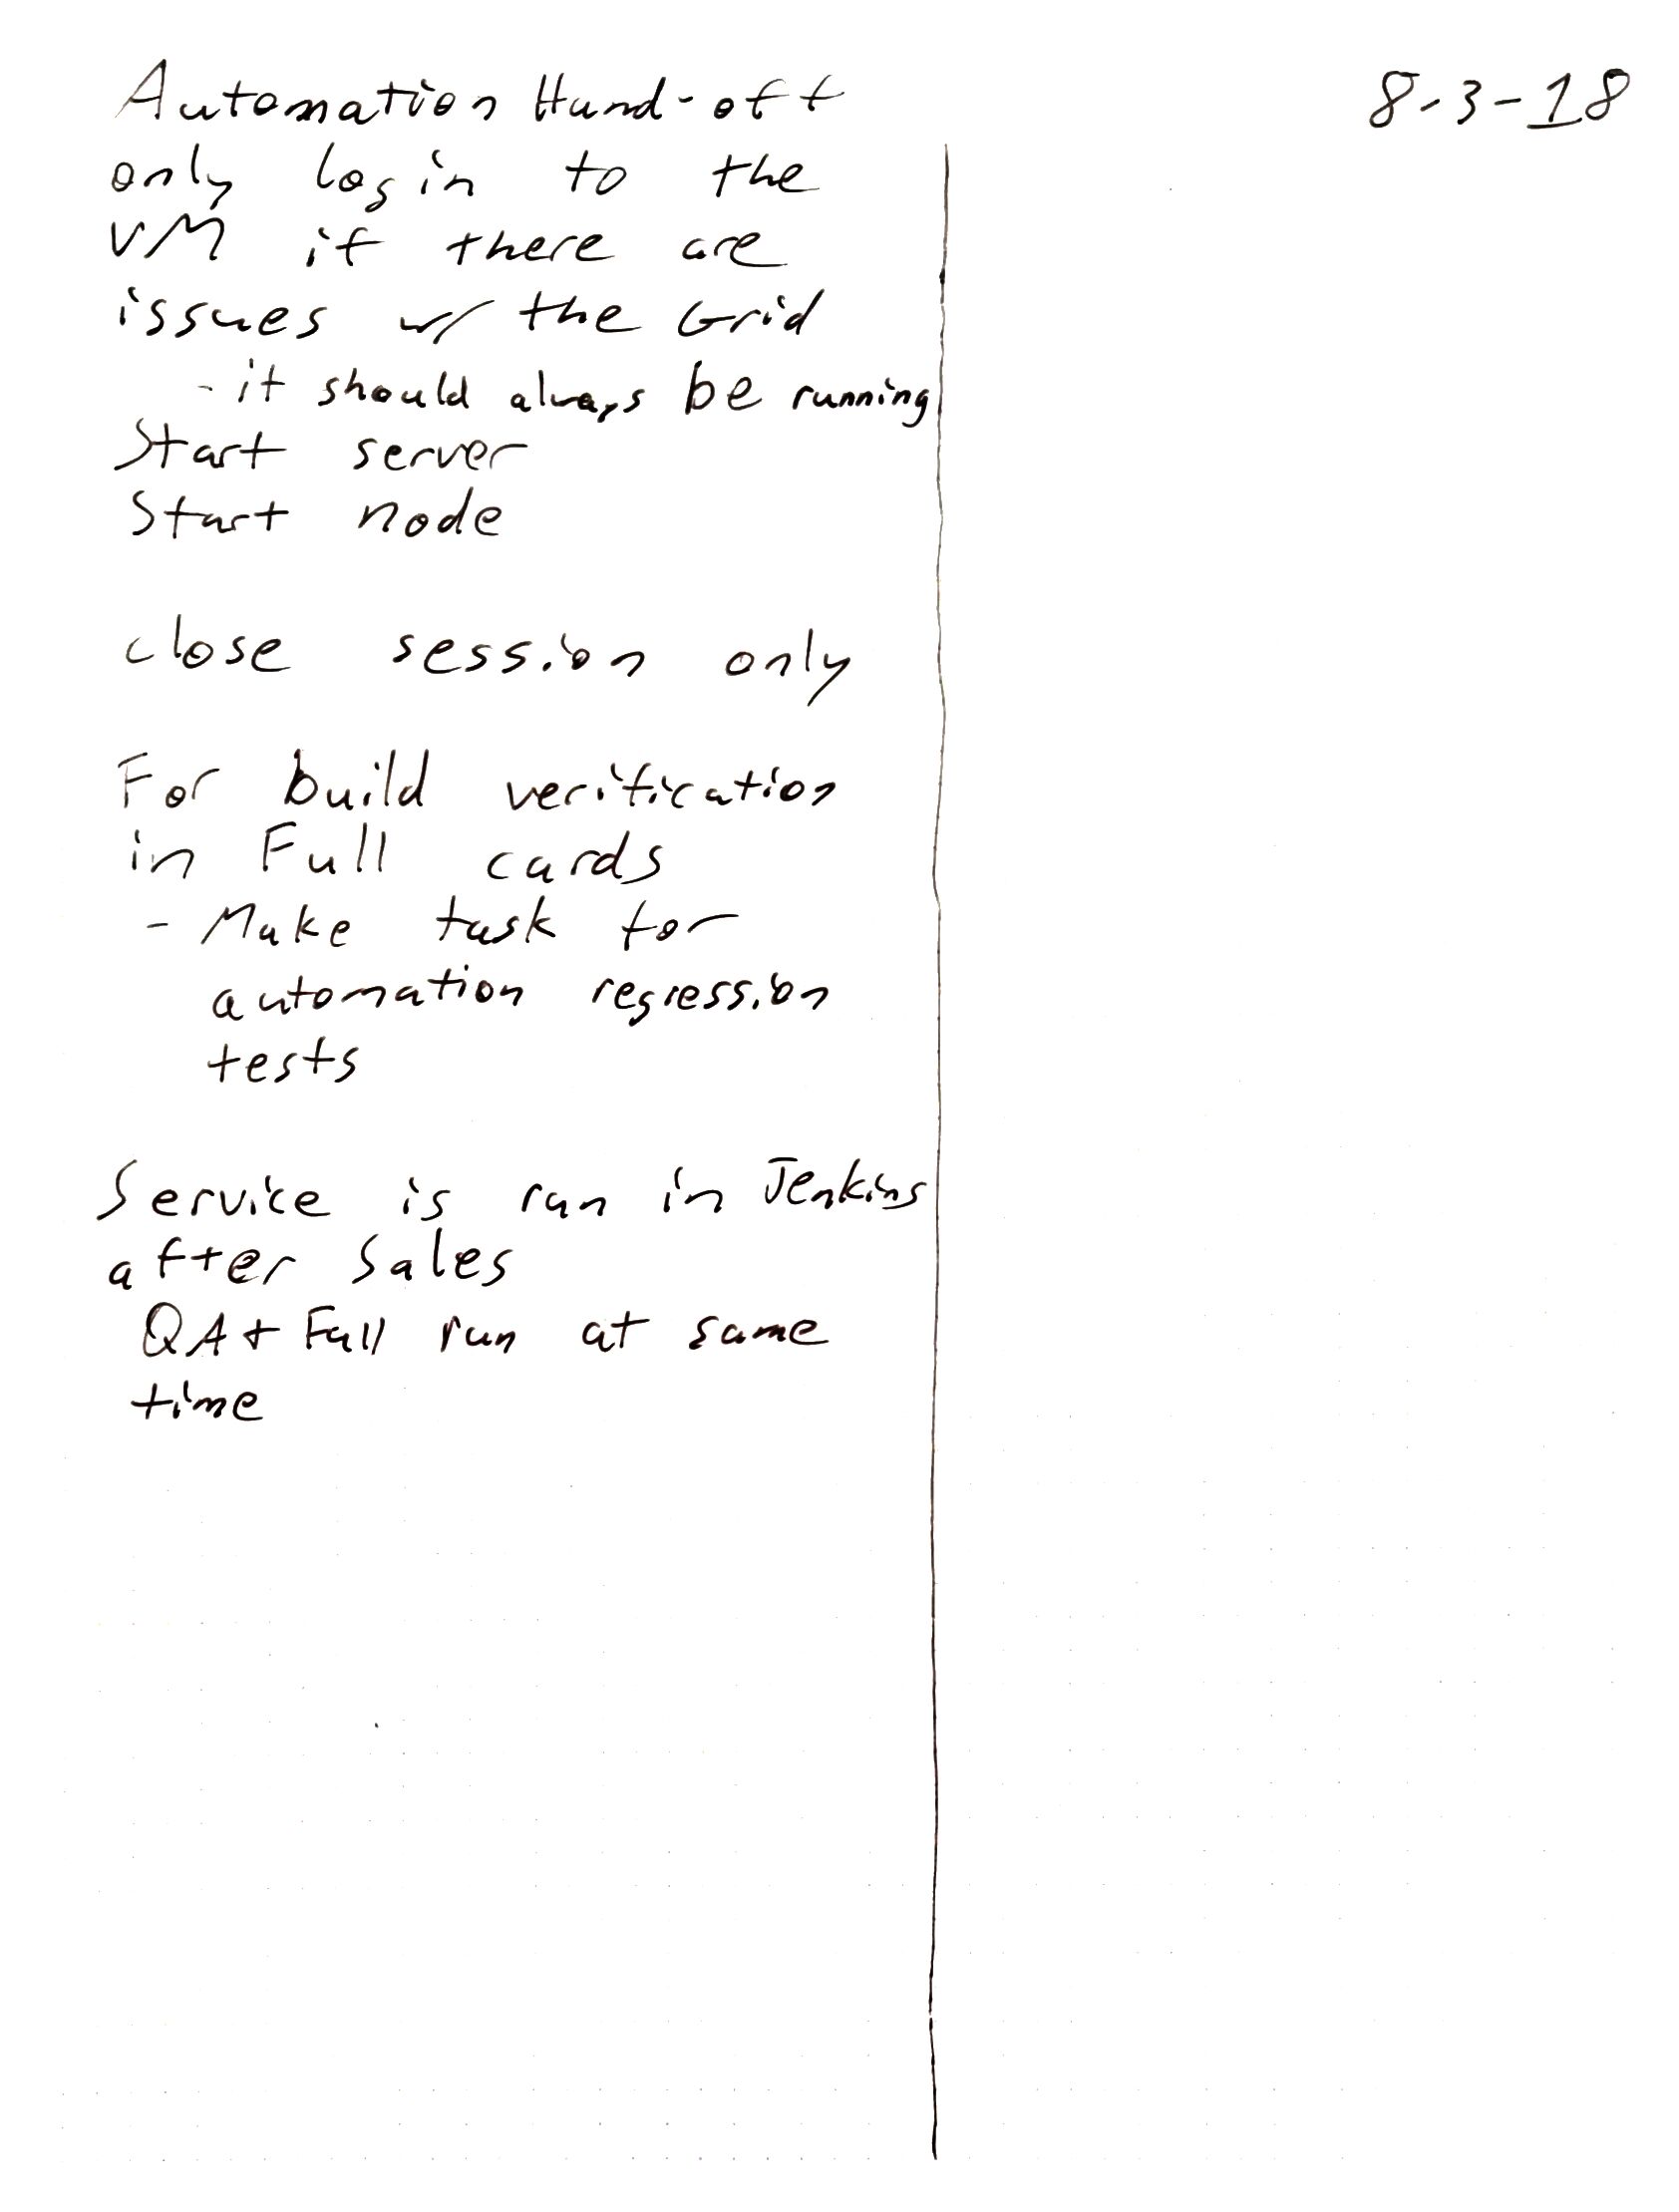 Automation Hand-off 8-3-18
only login to the
VM if there are
issues w/ the Grid
- it should always be running
Start server
Start node
close session only
For build verification
in Full cards
- Make task for
automation regression
tests
Service is run in Jenkins
after Sales
QA + Full run at same
time